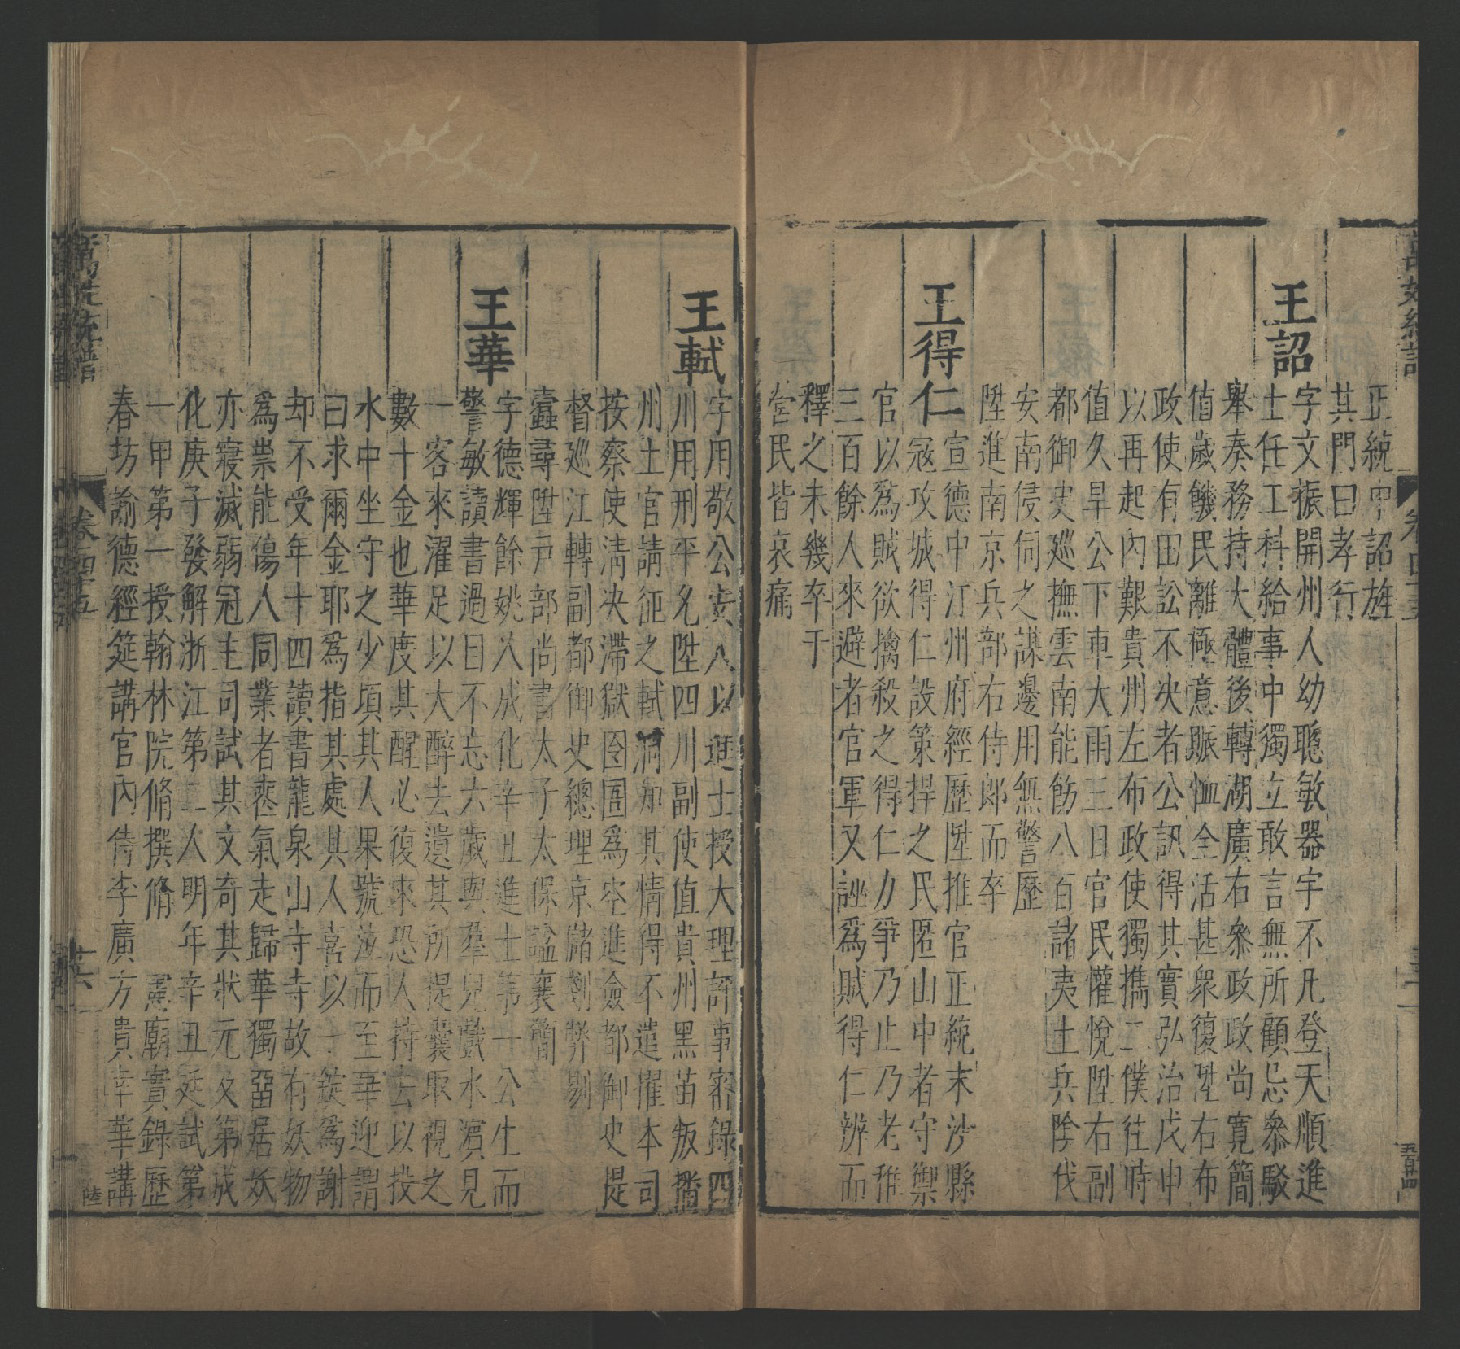 正統中詔旌
其門曰孝行
王詔
字文振開州人幼聰敏器宇不凡登天順進
士任工科給事中獨立敢言無所顧忌叅駁
舉奏務持大體後轉湖廣右叅政政尚寬簡
值歲饑民離極意賑恤全活甚衆復陞右布
政使有田訟不决者公訊得其實弘治戊申
以再起內艱貴州左布政使獨擕二僕往時
值久旱公下車大雨三日官民懽悅陞右副
都御史廵撫雲南能飭八百諸夷土兵隂伐
安南侵伺之謀邊用無警歷
陞進南京兵部右侍郎而卒
王得仁
宣德中汀州府經歷陞推官正統末沙縣
冦攻城得仁設策捍之民匿山中者守禦
官以爲賊欲擒殺之得仁力爭乃止乃老稚
三百餘人來避者官軍又誣爲賊得仁辨而
釋之未幾卒于
營民皆哀痛
王軾
字用敬公安人以進士授大理評事審錄四
川用刑平允陞四川副使值貴州黑苗叛播
州土官請征之軾洞知其情得不遣擢本司
按察使淸决滯獄囹圄爲空進僉都御史提
督廵江轉副都御史總理京儲剷弊剔
蠧尋陞戸部尚書太子太保謚襄簡
王華
字德輝餘姚人成化辛丑進士第一公生而
警敏讀書過目不忘六歲與羣兒戲水濱見
一客來濯足以大醉去遺其所提囊取視之
數十金也華度其醒必復來恐人持去以投
水中坐守之少頃其人果號泣而至華迎謂
曰求爾金耶爲指其處其人喜以一錠爲謝
却不受年十四讀書龍泉山寺寺故有妖物
爲祟能傷人同業者悉氣走歸華獨留居妖
亦寢滅弱冠主司試其文奇其狀元及第成
化庚子發解浙江第二人明年辛丑廷試第
一甲第一授翰林院脩撰脩　憲廟實錄歷
春坊諭德經筵講官內侍李廣方貴幸華講
萬姓統譜
卷四十五